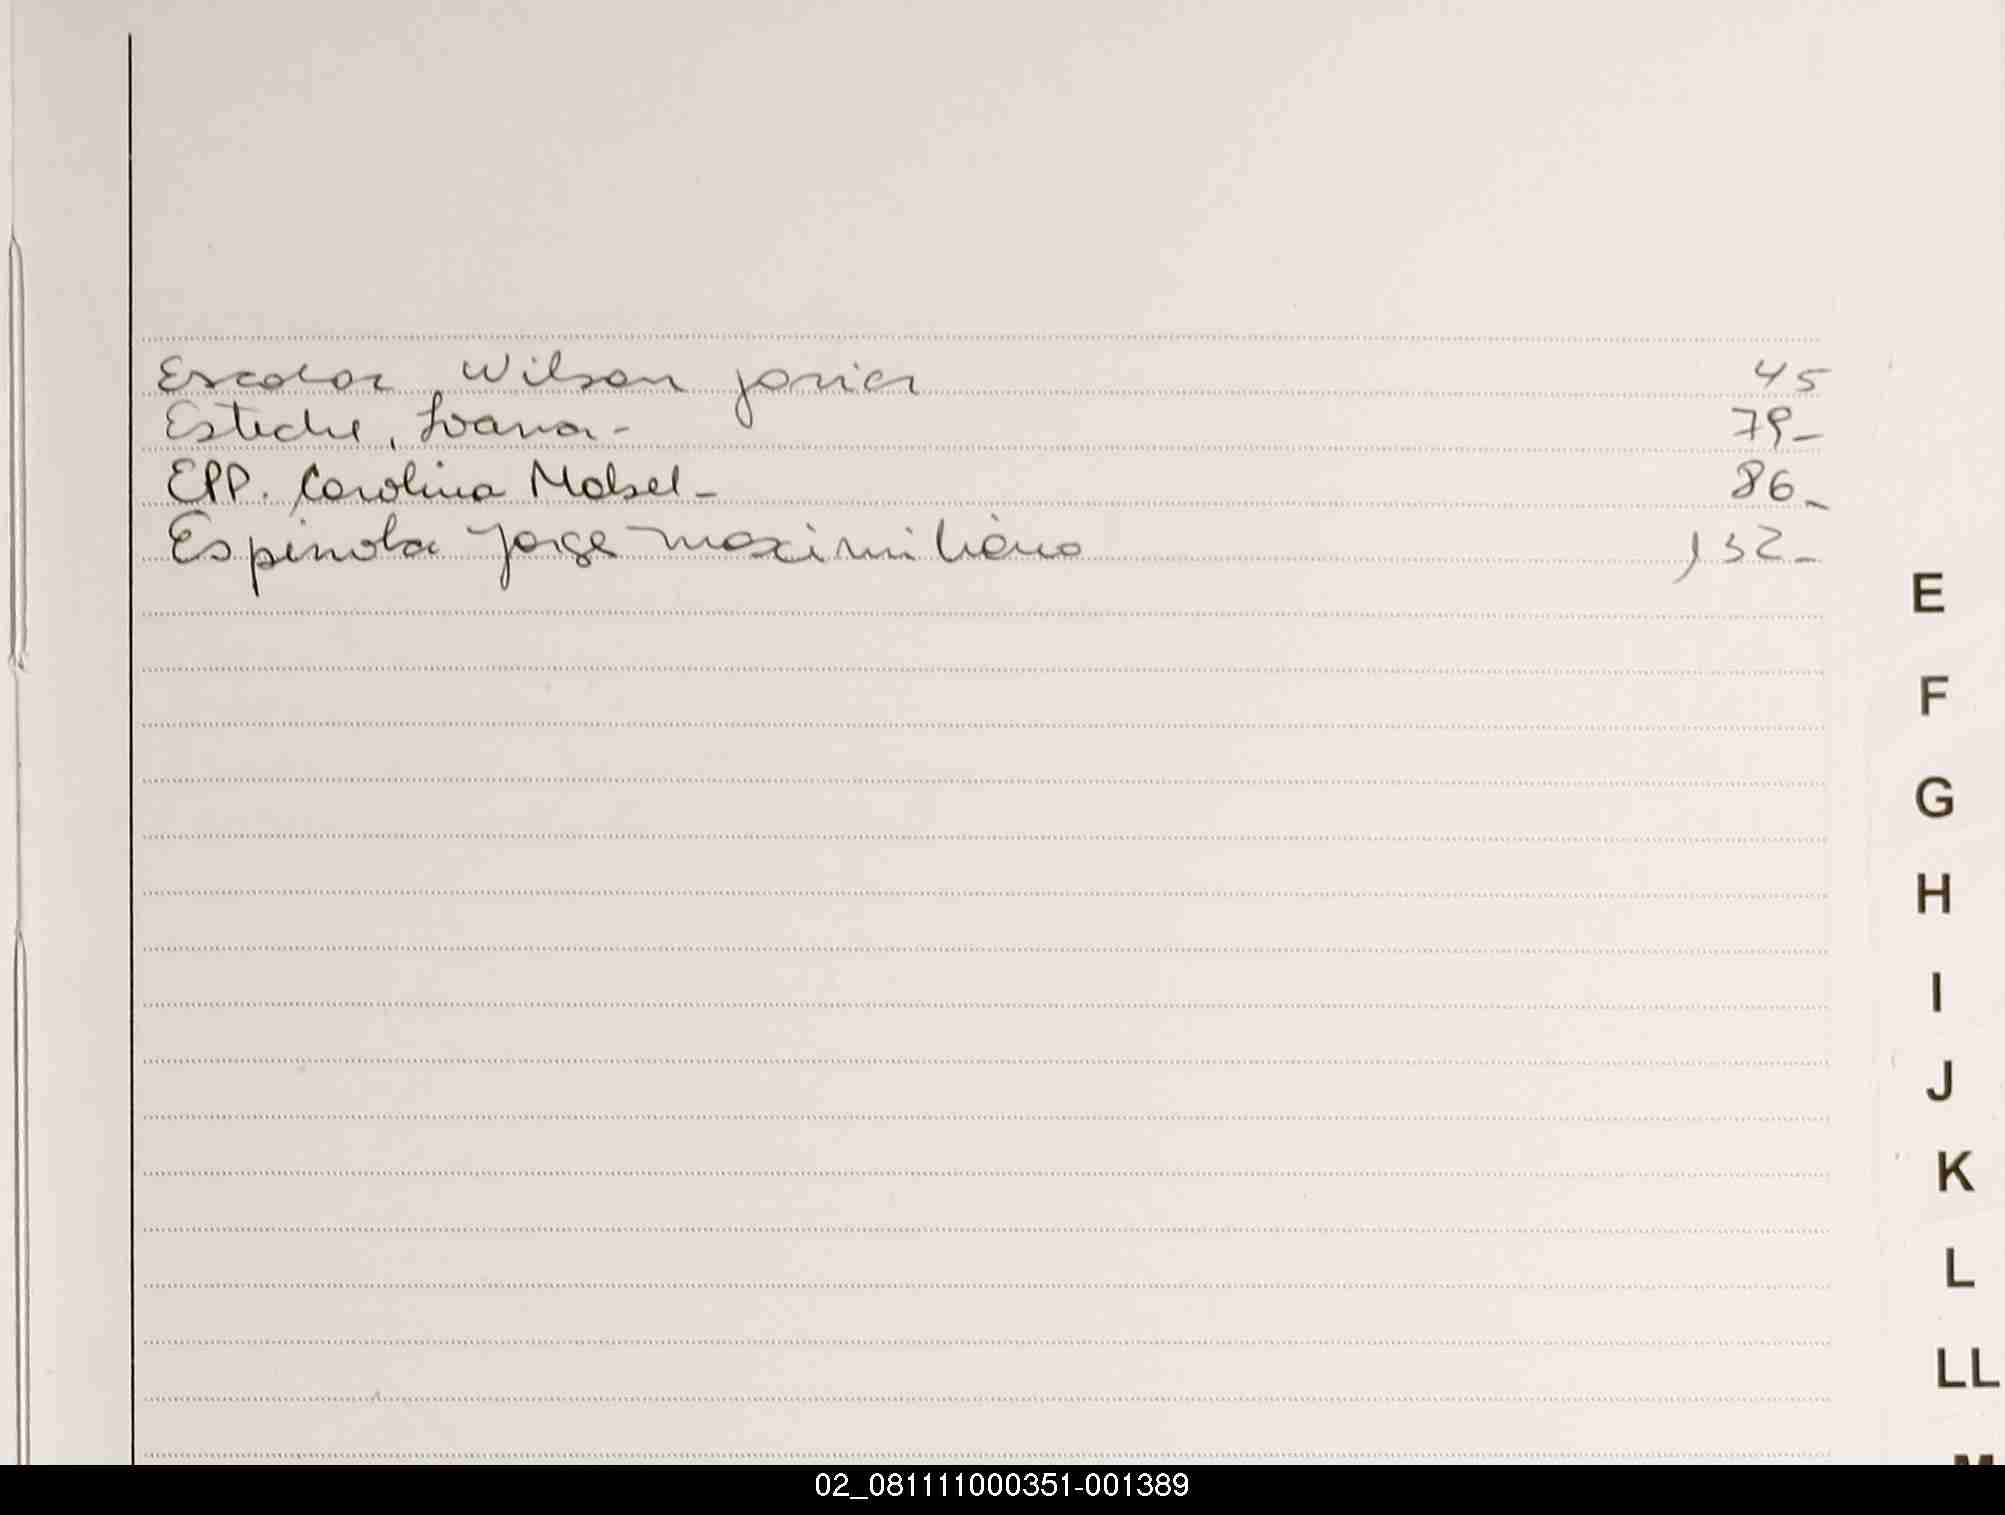 Escobar Wilson Javier 45
Esteche, Ivana - 79-
EPP. Carolina Mabel - 86-
Espinola Jorge Maximiliano 132-
E
F
G
H
I
J
K
L
LL
M
02_081111000351-001389